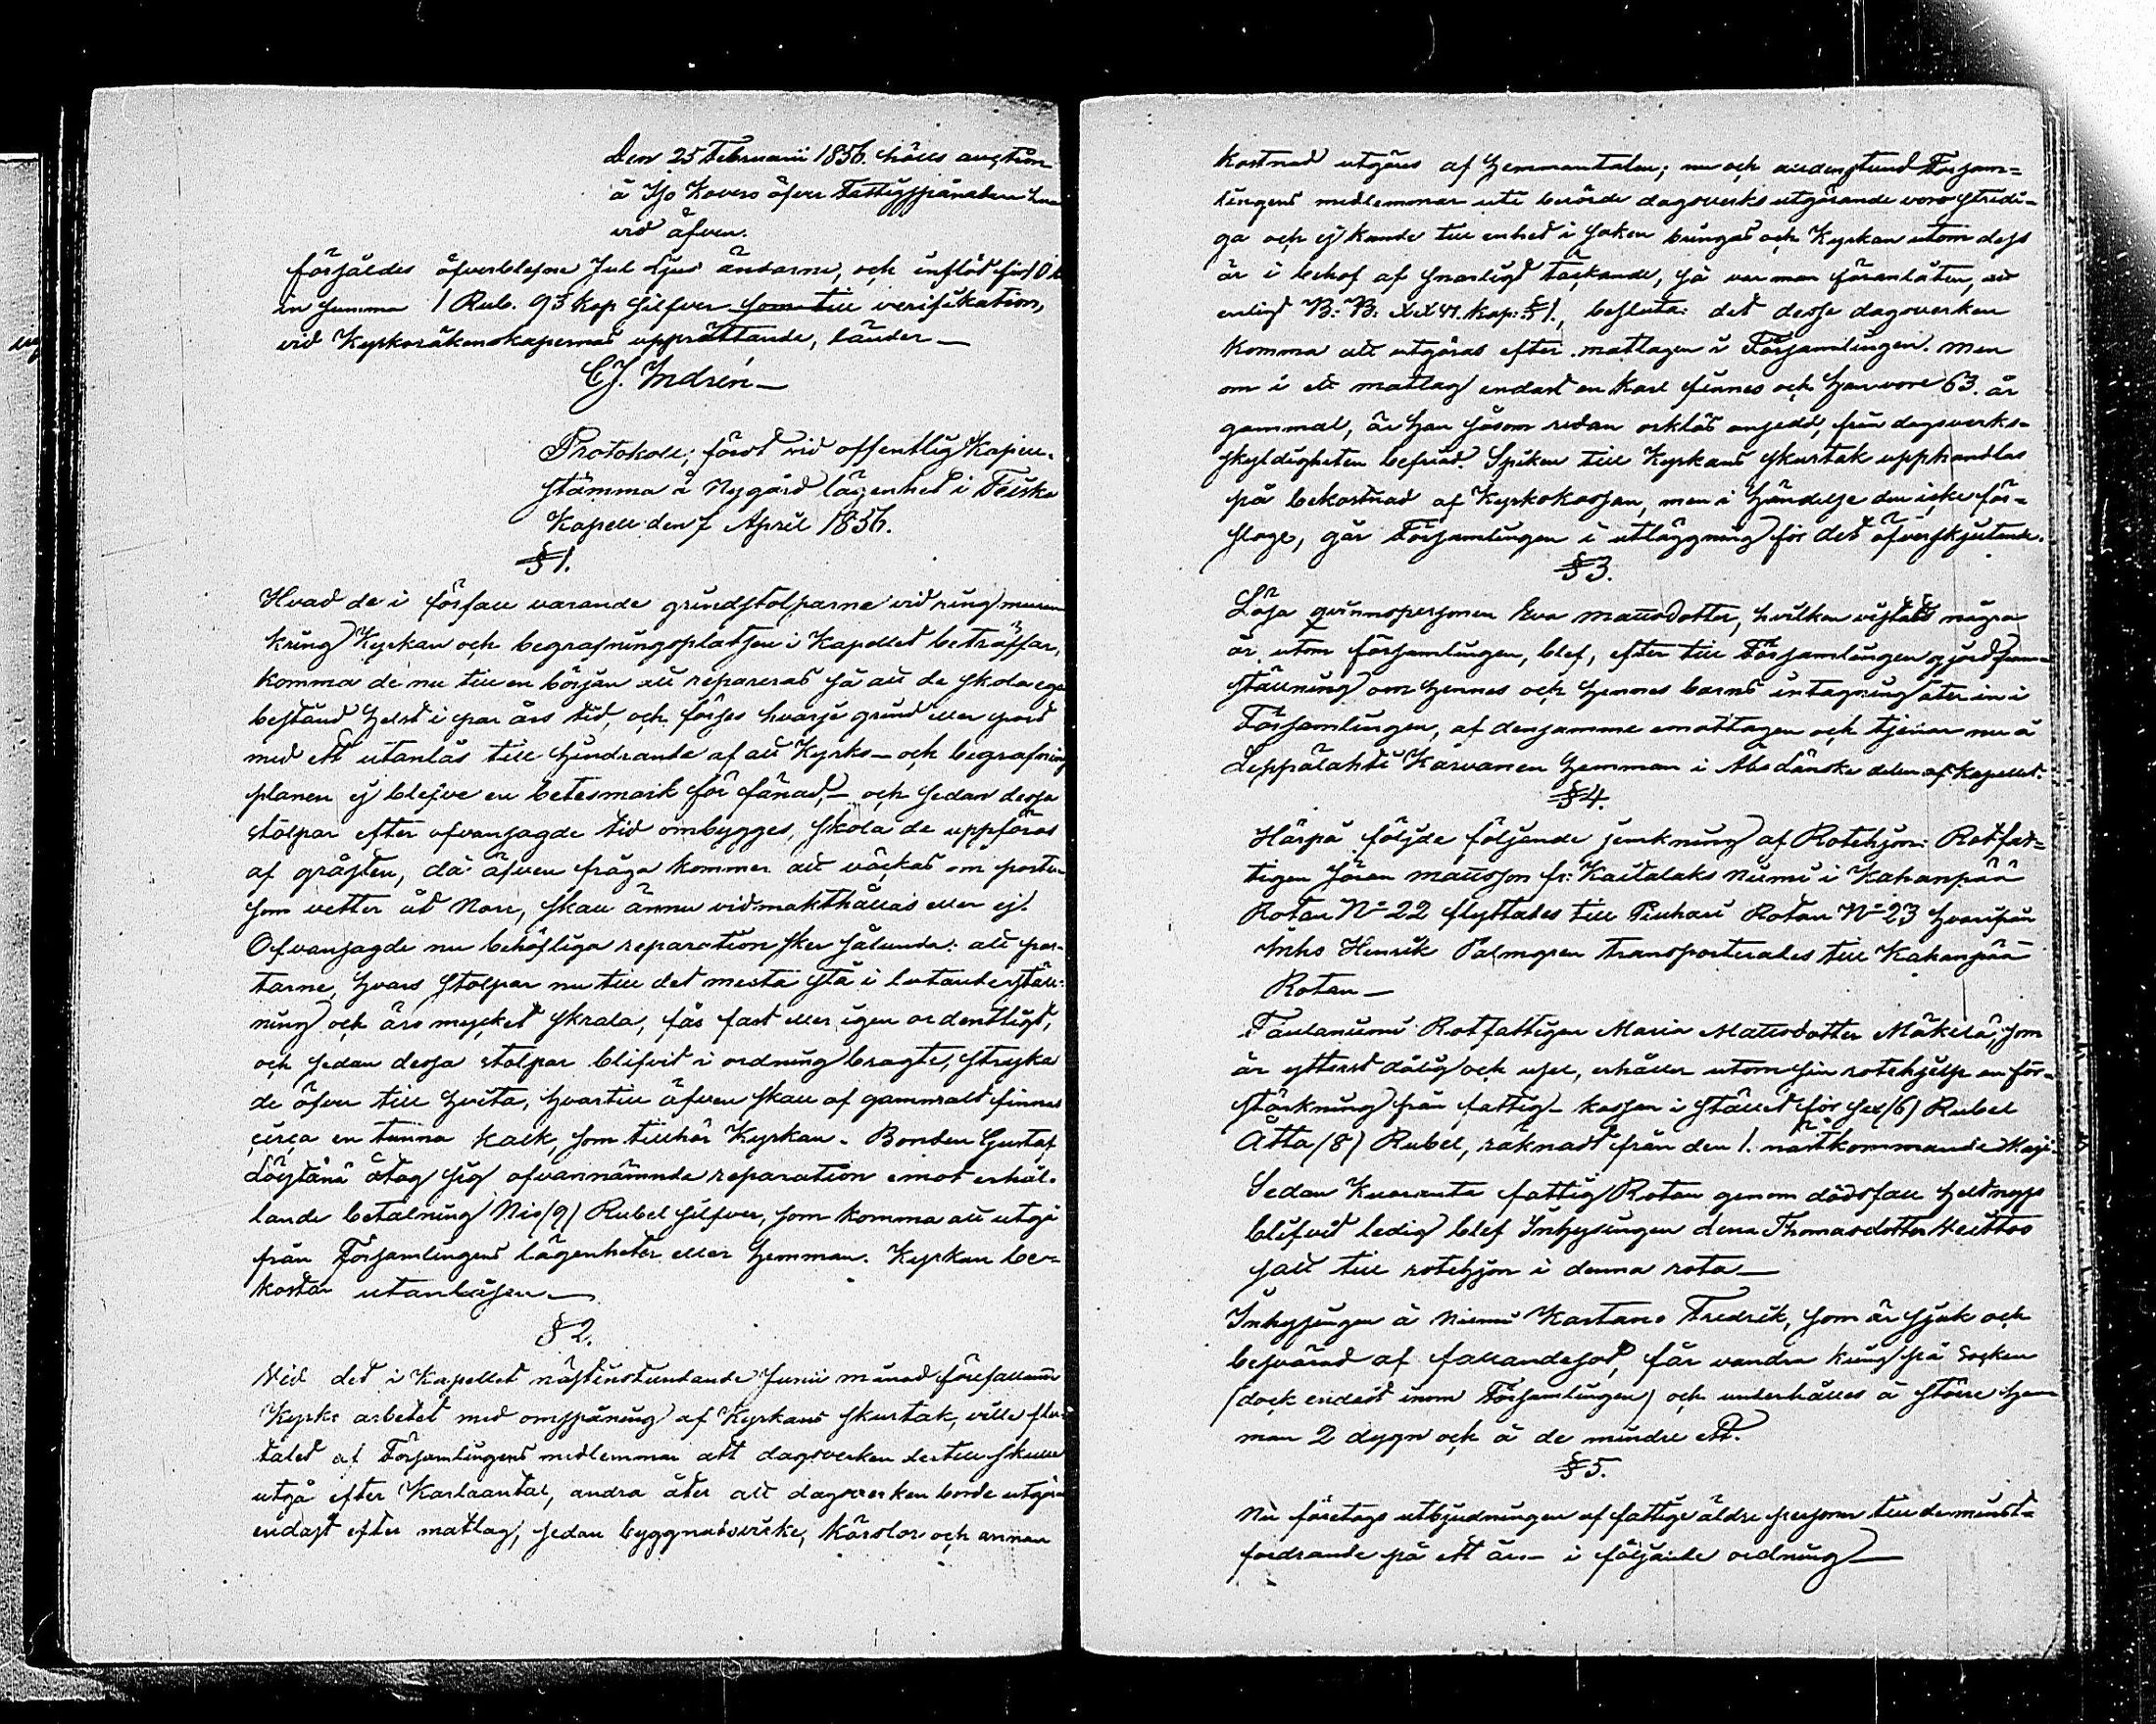 Den 25 Februarii 1856. hölls auction
å Iso Kovero öfver Fattigspånaden hvar
vid äfven.
försåldes öfverblefne Jul Ljus ändarne, och inflöt
en summa 1 Rub. 93 kop silfver som till verifikation,
vid Kyrkoräkenskapernas upprättande, länder —
C.J. Indrén —
Protokoll, fördt vid offentlig Kapell-
stämma å Nygård lägenhet i Teisko
Kapell den 7 April 1856.
§ 1.
Hvad de i förfall varande grindstolparne vid ringmuren
kring Kyrkan och begrafningsplatsen i Kapellet beträffar,
komma de nu till en början att repareras så att de skola ega
bestånd helst i par års tid, och förses hvarje grind eller port
med ett utanlås till hindrande af att Kyrko- och begrafnings
planen ej blefve en betesmark för fänad, — och sedan dessa
stolpar efter ofvansagde tid ombygges, skola de uppföras
af gråsten, då äfven fråga kommer att väckas om porten
som vetter åt Norr, skall ännu vidmakthållas eller ej.
Ofvansagde nu behöfliga reparation sker sålunda: att por-
tarne, hvars stolpar nu till det mesta stå i lutande ställ-
ning och äro mycket skrala, fås fast eller igen ordentligt,
och sedan dessa stolpar blifvit i ordning bragte, stryka
de öfver till hvita, hvartill äfven skall af gammalt finnas
circa en tunna kalk, som tillhör Kyrkan. Bonden Gustaf
Löytänä åtog sig ofvannämnde reparation emot erhål-
lande betalning Nio (9) Rubel silfver, som komma att utgå
från Församlingens lägenheter eller hemman. Kyrkan be-
kostar utanlåsen —
§ 2.
Vid det i Kapellet nästinstundande Junii månad förefallande
Kyrko arbetet med omspåning af Kyrkans skurtak, ville fler-
talet af Församlingens medlemmar att dagsverken dertill skulle
utgå efter Karlaantal, andra åter att dagsverken borde utgöras
endast efter matlag, sedan byggnadsvirke, körslor och annan
kostnad utgöres af hemmantalen; nu och alldenstund Försam-
lingens medlemmar uti berörde dagsverks utgörande voro stridi-
ga och ej kunde till enhet i saken bringas och Kyrkan utom dess
är i behof af snarligt täckande, så var man föranlåten, att
enligt B.B. XXVI. Kap: § 1., besluta: det desse dagsverken
komma att utgöras efter matlagen i Församlingen. men
om i ett matlag endast en karl finnes och han vore 63. år
gammal, är han såsom redan orklös ansedd, från dagsverks-
skyldigheten befriad. Spiken till Kyrkans skurtak upphandlas
på bekostnad af Kyrkokassan, men i händelse den icke för-
sloge, går Församlingen i utläggning för det öfverskjutande.
§ 3.
Lösa qvinnspersonen Eva Mattsdotter, hvilken vistats några
år utom församlingen, blef, efter till Församlingen gjord fram-
ställning om hennes och hennes barns intagning åter in i
Församlingen, af densamme emottagen och tjenar nu å
Leppälahti Karvanen hemman i Åbo Länske delen af Kapellet.
§ 4.
Härpå följde följande jemkning af Rotehjon: Rotfat-
tigen Jöran Mattsson fr: Kaitalaks Niemi i Kahanpää
Rotan N=22 flyttades till Piuhari Rotan N=23 hvarifrån
Inhs Henrik Palmgren transporterades till Kahanpää
Rotan —
Taulaniemi Rotfattigen Maria Mattsdotter Mäkelä, som
är ytterst dålig och usel, erhåller utom sin rotehjelp en för-
stärkning från fattig-kassan i stället för Sex (6) Rubel
Åtta (8) Rubel, räknadt från den 1. nästkommande Maji.
Sedan Kuoranta fattig Rotan genom dödsfall helt nyss
blifvit ledig blef Inhysingen Lena Thomasdotter
satt till rotehjon i denna rota —
Inhysingen å Niemi Kartano Fredrik, som är sjuk och
besvärad af fallandesot, får vandra kring på Socken
(dock endast inom Församlingen) och underhålles å större hem-
man 2 dygn och å de mindre ett.
§ 5.
Nu företogs utbjudningen af fattige äldre personer till den minst-
fordrande på ett års— i följande ordning —